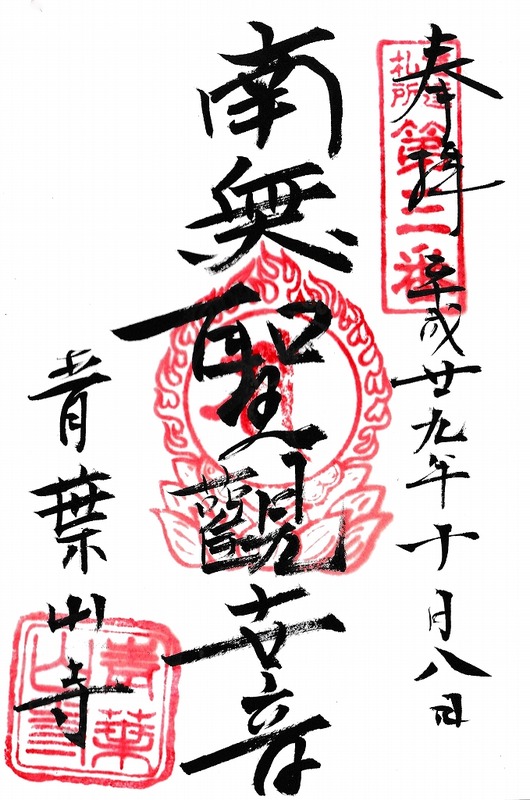 奉拝 平成廿九年十月八日
札所
第二番
南無聖観世音
青葉山寺
青葉山寺